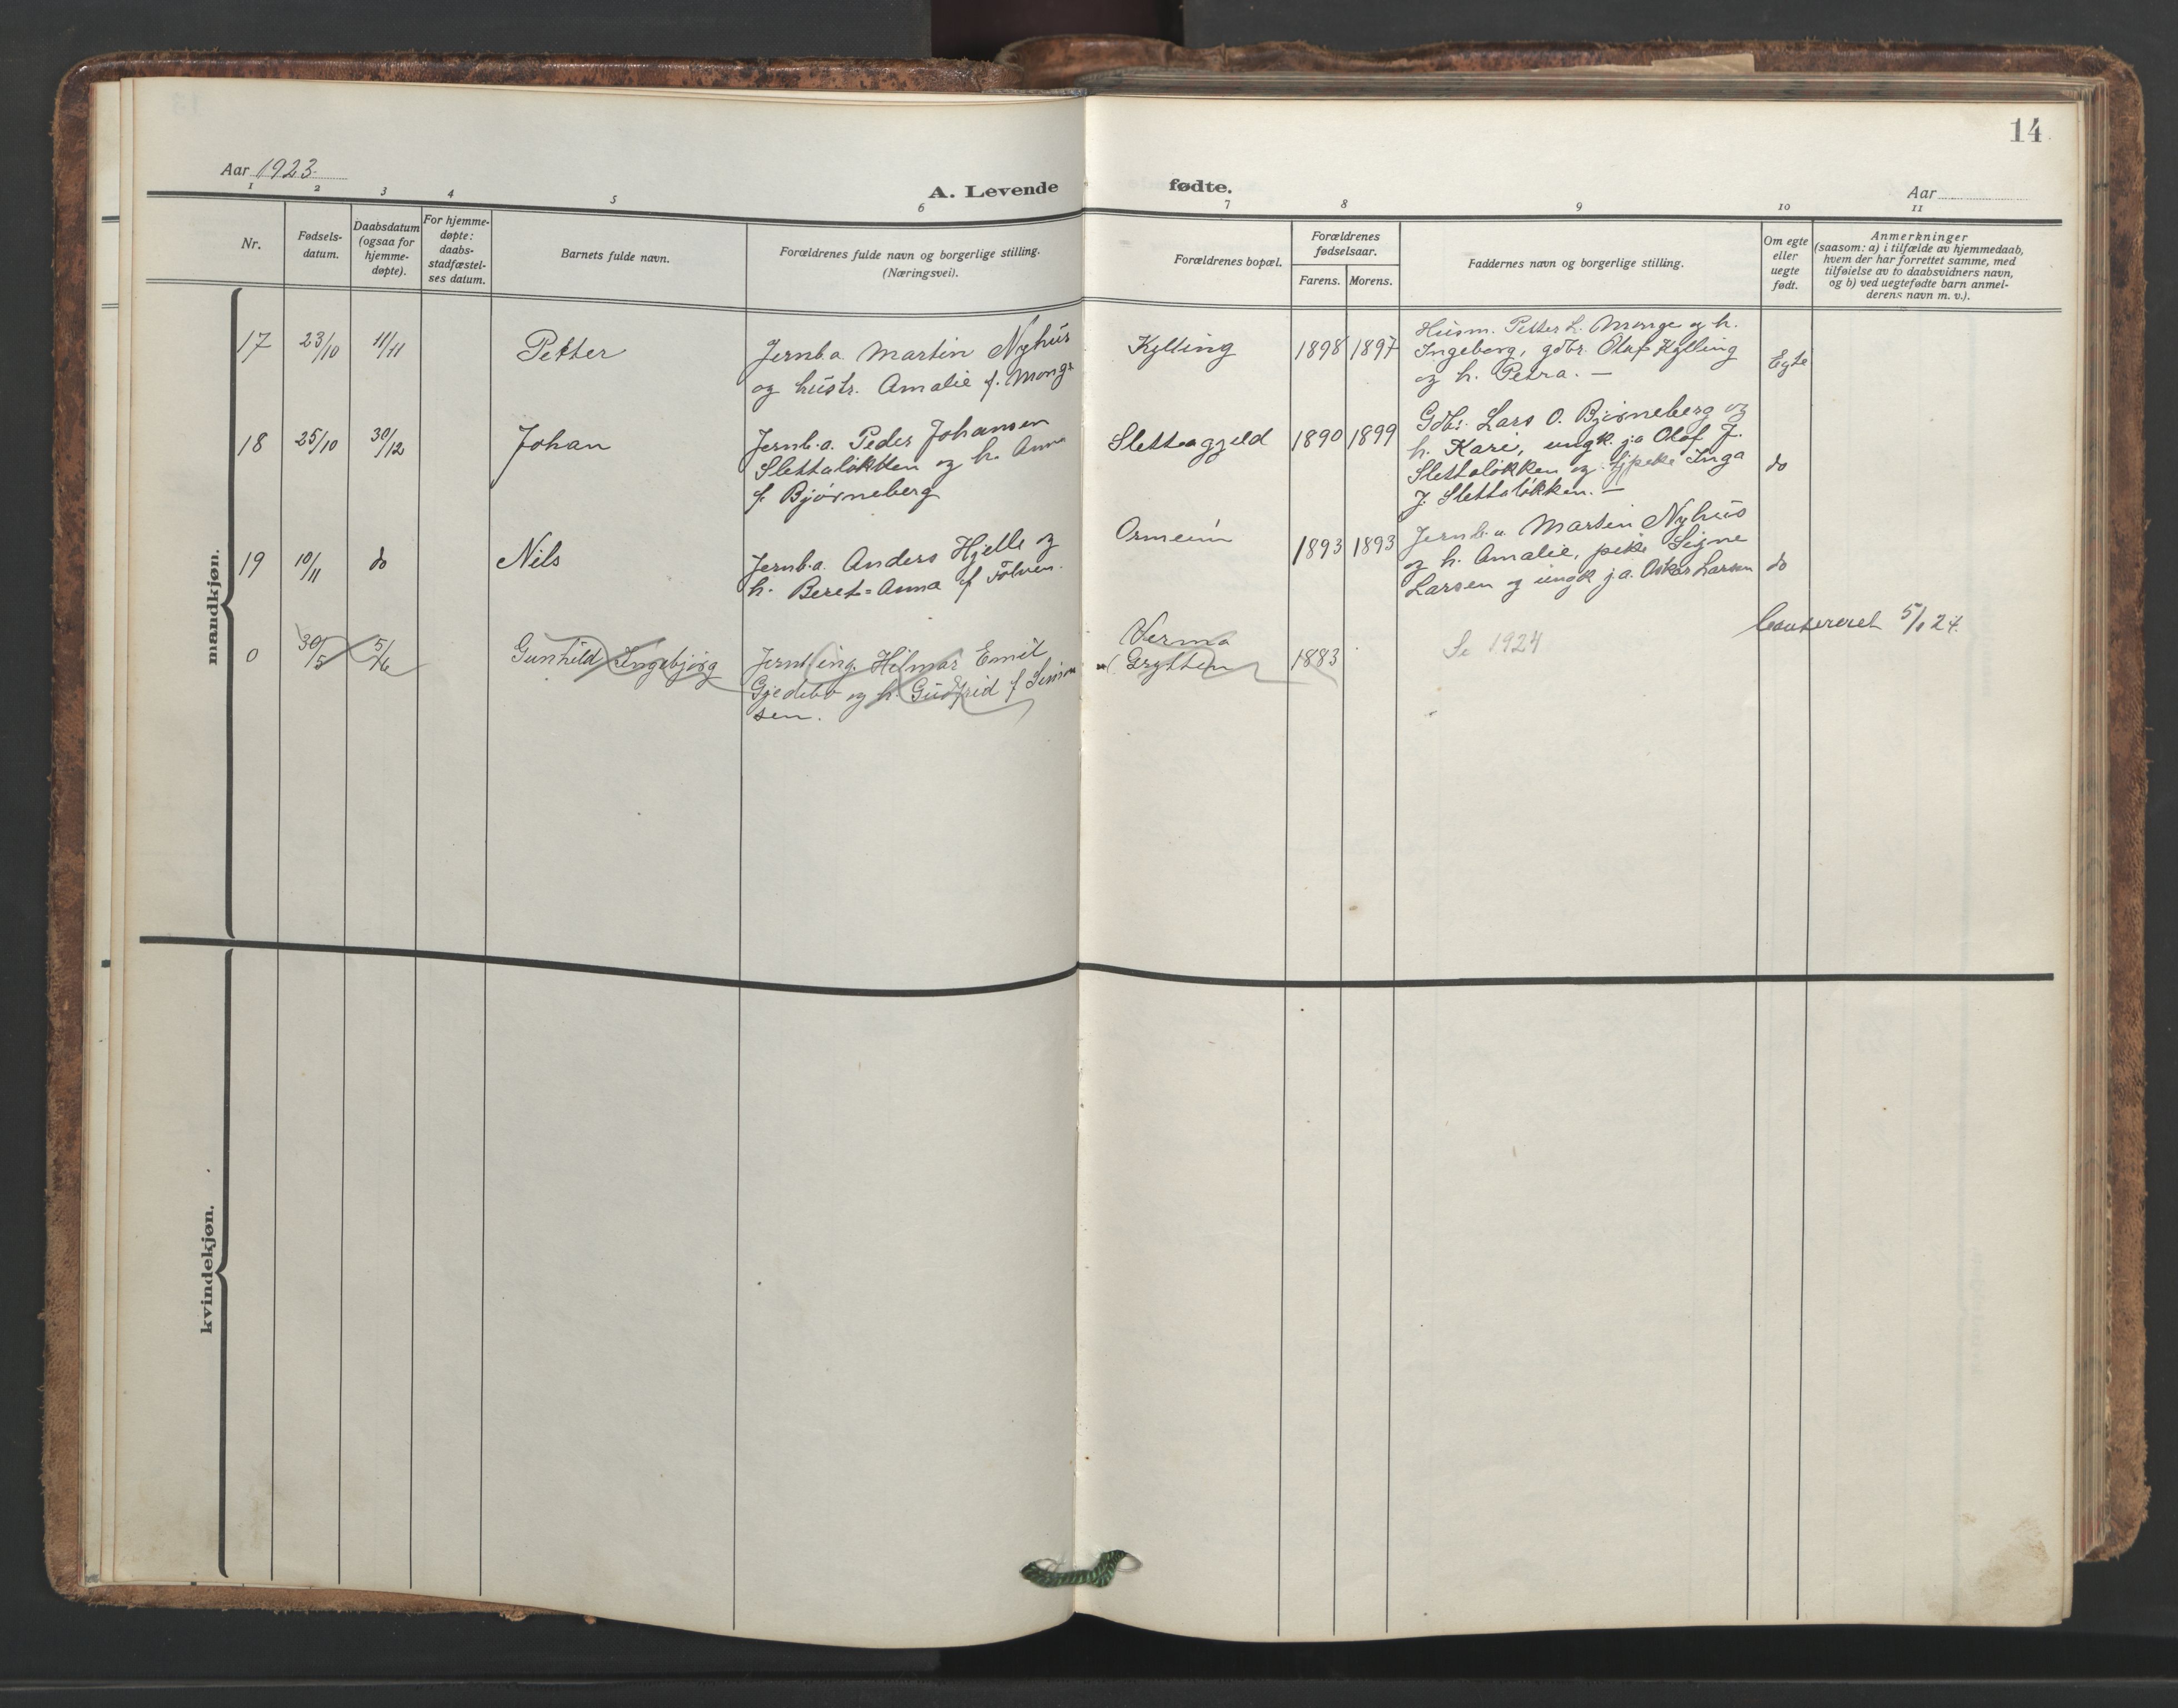 14
Aar 1923.
A. Levende fødte.
Aar
1 2 3 4 5 6 7 8 9 10 11
Nr.
Fødsels-
datum.
Daabsdatum
(ogsaa for
hjemme-
døpte).
For hjemme-
døpte:
daabs-
stadfæstel-
ses datum.
Barnets fulde navn.
Forældrenes fulde navn og borgerlige stilling.
(Næringsvei).
Forældrenes bopæl.
Forældrenes
fødselsaar.
Farens. Morens.
Faddernes navn og borgerlige stilling.
Om egte
eller
uegte
født.
Anmerkninger
(saasom: a) i tilfælde av hjemmedaab,
hvem der har forrettet samme, med
tilføielse av to daabsvidners navn,
og b) ved uegtefødte barn anmel-
derens navn m. v.).
mandkjøn.
17 23/10 11/11 Petter
Jernb.a. Martin Nyhus
og hustr. Amalie f. Monge
Kylling 1898 1897
Husm. Petter L. Monge og h.
Ingeborg, gdbr. Olaf Kylling
og h. Petra. —
Egte
18 25/10 30/12 Johan
Jernb.a. Peder Johansen
Slettaløkken og h. Anna
f. Bjørneberg
Slettagjeld 1890 1899
Gdbr. Lars O. Bjørneberg og
h. Kari, ungk. j.a Olaf J.
Slettaløkken og Inga
J. Slettaløkken. —
do
19 10/11 do Nils
Jernb.a. Anders Hjelle og
h. Beret=Anna f. Tølven.
Ormeim 1893 1893
Jernb.a. Martin Nyhus
og h. Amalie, pike Signe
Larsen og ungk j.a. Oskar Larsen
do
0 30/5 5/6 Gunhild Ingebjørg
Jernb.ing. Hilmar Emil
Gjedebo og h. Gudfrid f Simon
sen.
Verma
Grytten 1883
Se 1924
5/1 24.
kvindekjøn.